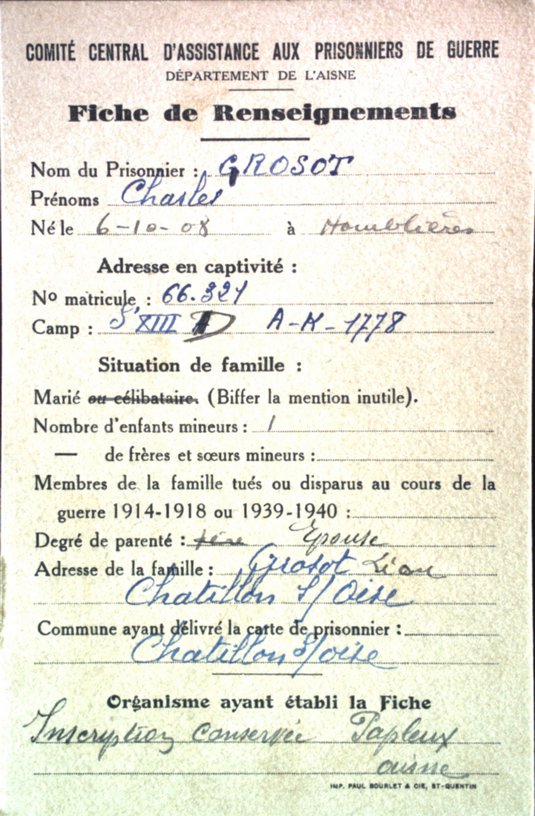 COMITÉ CENTRAL D'ASSISTANCE AUX PRISONNIERS DE GUERRE
DÉPARTEMENT DE L'AISNE
Fiche de Renseignements
Nom du Prisonnier : GROSOT
Prénoms Charles
Né le 6-10-08 à Homblières
Adresse en captivité :
No matricule : 66.321
Camp : S/ XIII D A-K-1778
Situation de famille :
Marié ou célibataire. (Biffer la mention inutile).
Nombre d'enfants mineurs : 1
— de frères et sœurs mineurs :
Membres de la famille tués ou disparus au cours de la
guerre 1914-1918 ou 1939-1940 :
Degré de parenté : père Epouse
Adresse de la famille : Grosot Léon
Chatillon s/Oise
Commune ayant délivré la carte de prisonnier :
Chatillon s/oise
Organisme ayant établi la Fiche
Inscription conservée Papleux
aisne
IMP. PAUL BOURLET & CIE, ST-QUENTIN